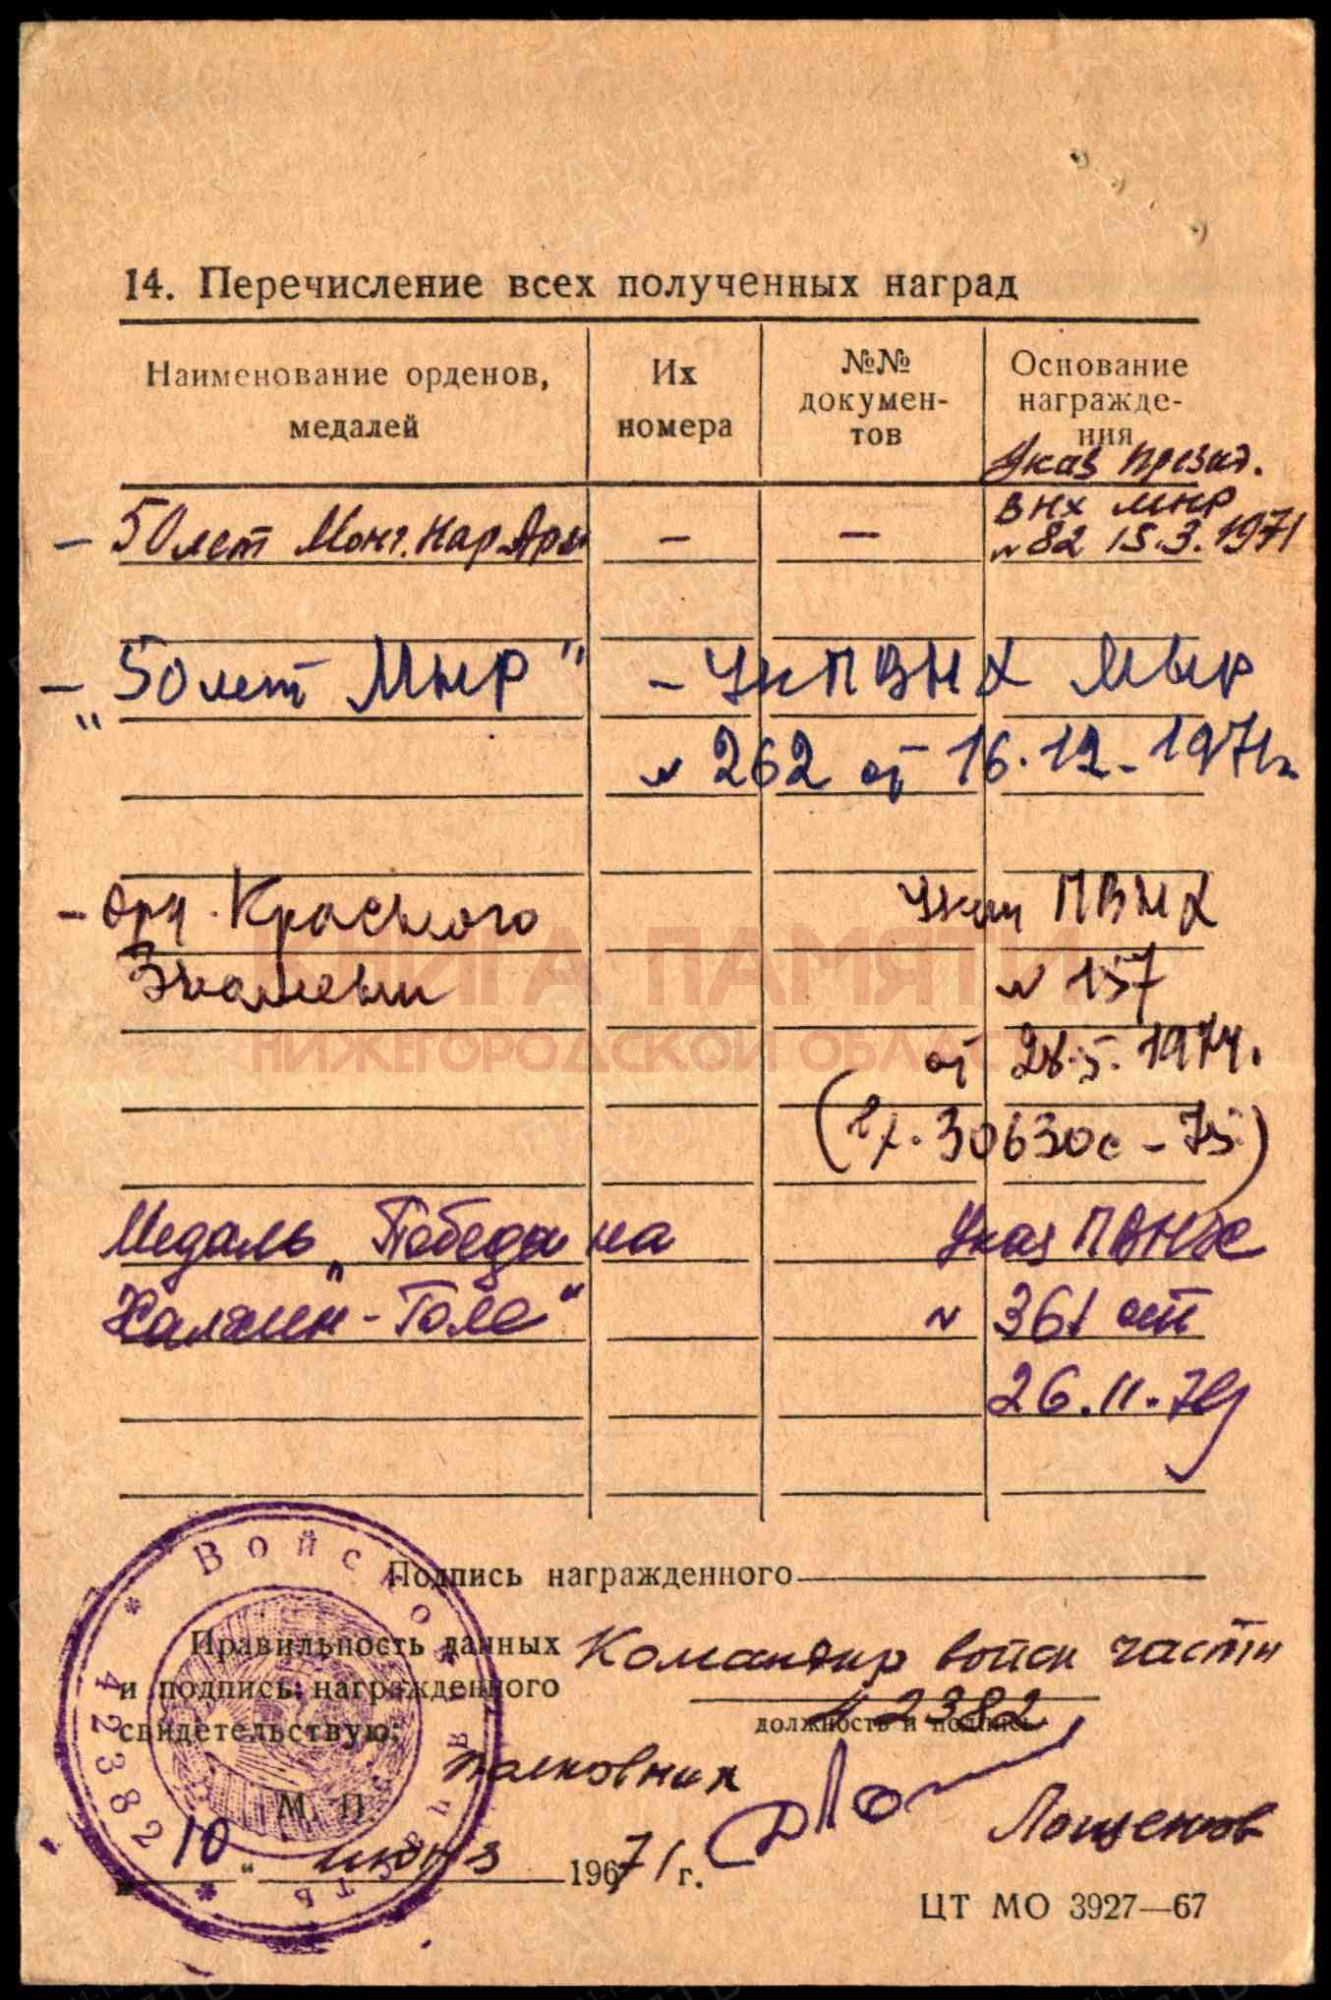 14. Перечисление всех полученных наград
Наименование орденов, медалей
Их номера
№№ докумен-
тов
Основание
награжде-
ния
Указ През��д.
- 50 лет Монг. Нар. Арм — —
ВНХ МНР
№ 82 15.3.1971
- "50 лет МНР" - Ук ПВНХ МНР
№ 262 от 16.12.1971г
- Орд. Красного Указ ПВНХ
Знамени № 157
от 28.5.1974.
(Вх. 30630с - 75)
Медаль „Победа на Указ ПВНХ
Халхин-Голе" № 361 от
26.11.79
Подпись награжденного
Правильность данных
и подпись награжденного
свидетельствую:
Командир войск части
42382
должность и подпись
полковник
Лощенов
М. П.
„10" июня 1971 г.
ЦТ МО 3927—67
Войсковая часть
* 42382 *
КНИГА ПАМЯТИ
НИЖЕГОРОДСКОЙ ОБЛАСТИ
ПАМЯТЬ НАРОДА